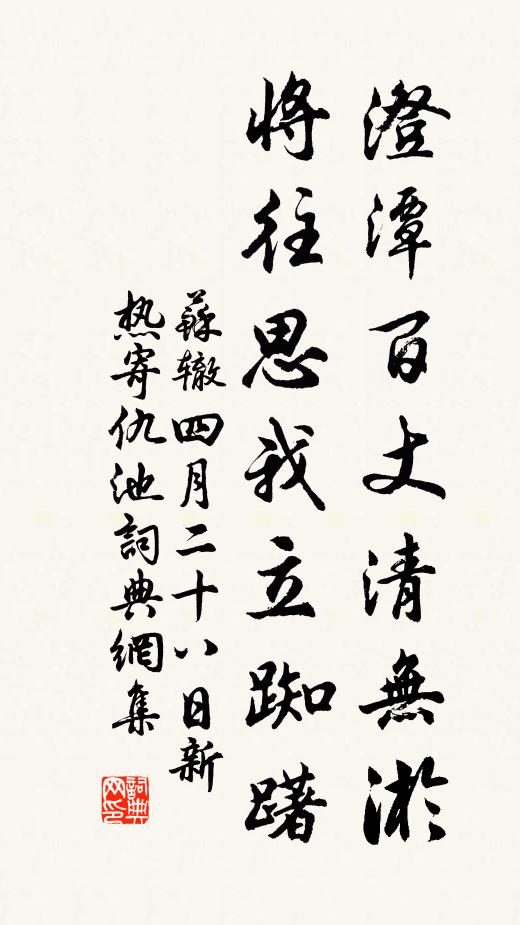 澄潭百丈清無淤
將往思我立踟躇
蘇辙四月二十八日新
热寄仇池詞典網集
詞典
网印